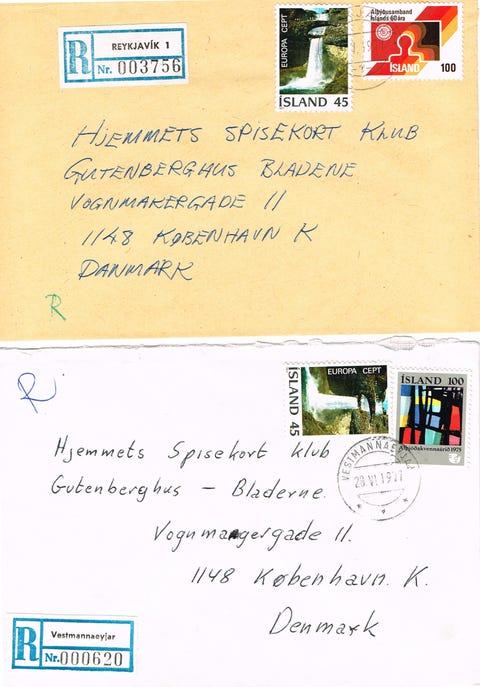 R
REYKJAVÍK 1
Nr. 003756
EUROPA CEPT
ÍSLAND 45
Alþýðusamband
Íslands 60 ára
ÍSLAND 100
HJEMMETS SPISEKORT KLUB
GUTENBERGHUS BLADENE
VOGNMAKERGADE 11
1148 KØBENHAVN K
DANMARK
R
R
ÍSLAND 45
EUROPA CEPT
ÍSLAND 100
Alþjóðakvennaárið 1975
VESTMANNAEYJAR
28.VI.1977
Hjemmets Spisekort klub
Gutenberghus – Bladerne.
Vognmangergade 11.
1148 København. K.
Denmark
R
Vestmannaeyjar
Nr. 000620